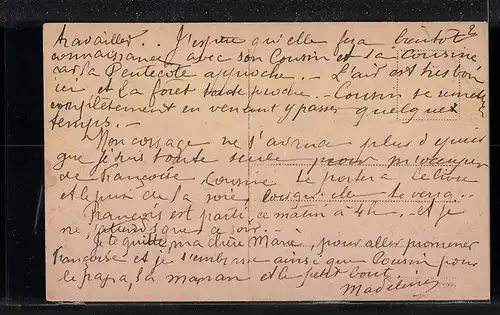 travailler.. J'espère qu'elle fera bientôt
connaissance avec son Cousin et sa Cousine
car la Pentecôte approche. - L'air est très bon
ici et la forêt toute proche. - Cousin se
complètement en venant y passer quelques
temps. -
Mon corsage ne s'avance plus depuis
que je suis toute seule pour m'occuper
de Françoise. Cousine te portera le livre
et le de la soie, lorsqu'elle te verra...
François est parti ce matin à 4h. et je
ne l'attends que ce soir. -
Je te quitte, ma chère Marie, pour aller promener
Françoise et je t'embrasse ainsi que Cousin pour
le papa, la maman et le petit bout.
Madeleine